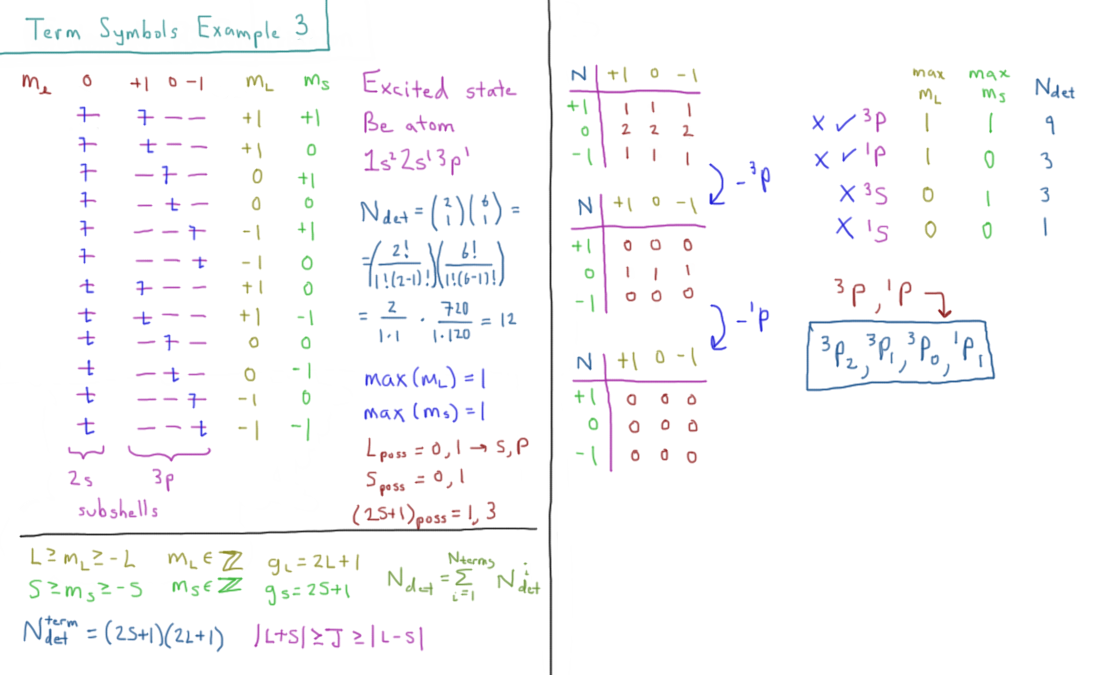 Term Symbols Example 3
mₗ 0 +1 0 -1 M_L M_S
↿ ↿ — — +1 +1
↿ ⇂ — — +1 0
↿ — ↿ — 0 +1
↿ — ⇂ — 0 0
↿ — — ↿ -1 +1
↿ — — ⇂ -1 0
⇂ ↿ — — +1 0
⇂ ⇂ — — +1 -1
⇂ — ↿ — 0 0
⇂ — ⇂ — 0 -1
⇂ — — ↿ -1 0
⇂ — — ⇂ -1 -1
2s 3p
subshells
Excited state
Be atom
1s² 2s¹ 3p¹
N_det = (2 1)(6 1) =
= (2! / 1!(2-1)!)(6! / 1!(6-1)!)
= 2 / 1·1 · 720 / 1·120 = 12
max(M_L) = 1
max(M_S) = 1
L_poss = 0, 1 → S, P
S_poss = 0, 1
(2S+1)_poss = 1, 3
L ≥ M_L ≥ -L M_L ∈ ℤ g_L = 2L+1
S ≥ M_S ≥ -S M_S ∈ ℤ g_S = 2S+1
N_det = Σ_{i=1}^{N_terms} N_det^i
N_det^term = (2S+1)(2L+1) |L+S| ≥ J ≥ |L-S|
N +1 0 -1
+1 1 1 1
0 2 2 2
-1 1 1 1
-³P
N +1 0 -1
+1 0 0 0
0 1 1 1
-1 0 0 0
-¹P
N +1 0 -1
+1 0 0 0
0 0 0 0
-1 0 0 0
max M_L max M_S N_det
X ✓ ³P 1 1 9
X ✓ ¹P 1 0 3
X ³S 0 1 3
X ¹S 0 0 1
³P, ¹P
³P₂, ³P₁, ³P₀, ¹P₁